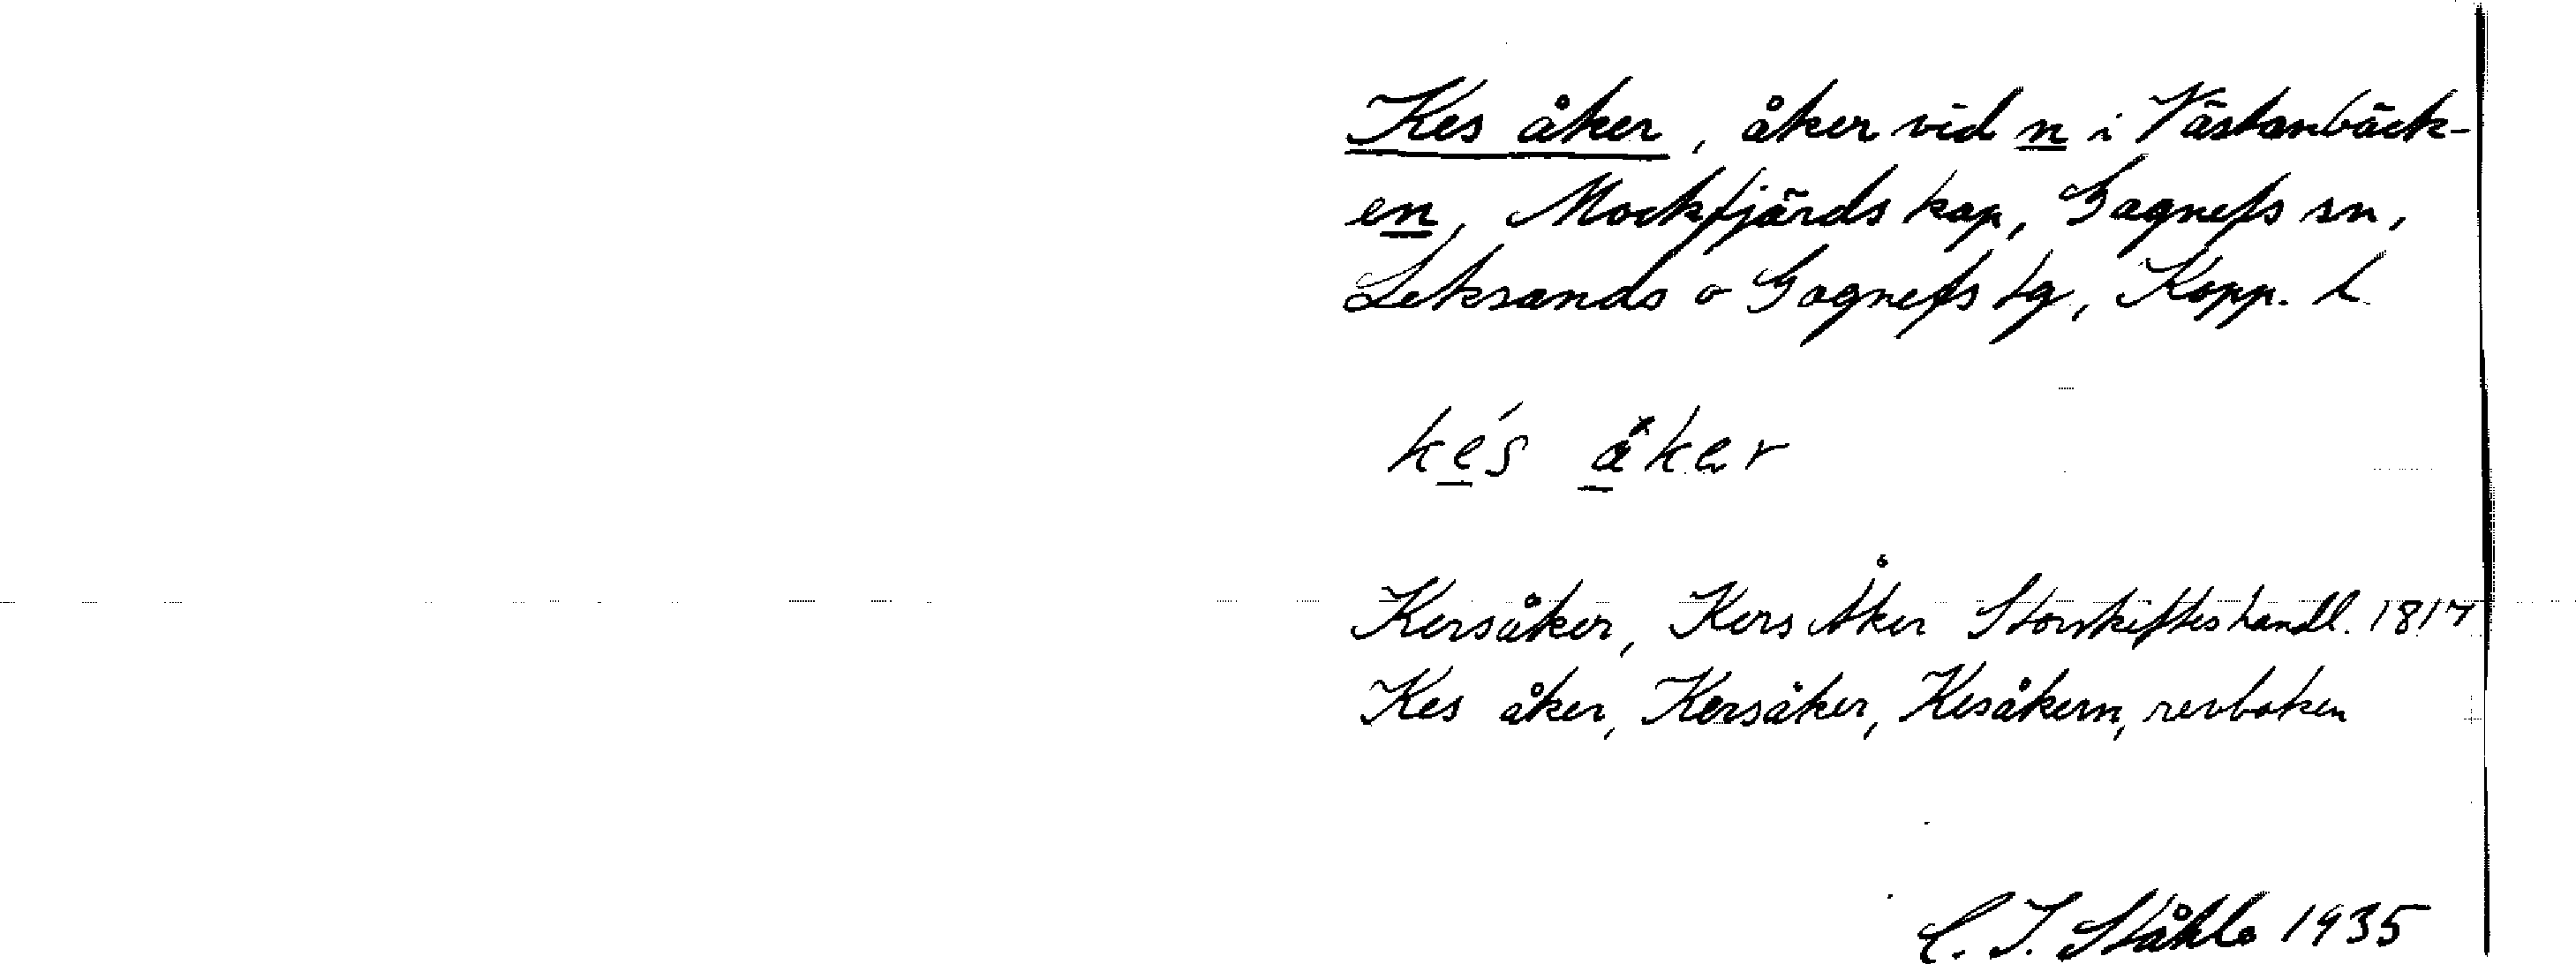 Kes åker, åker vid n i Västanbäck-
en, Mockfjärds kap, Gagnefs sn,
Leksands o Gagnefs tg, Kopp. l
kés åker
Kersåker, Kers Åker Storskifteshandl. 1817
Kes åker, Kersåker, Kesåkern, revboken
C. I. Ståhle 1935